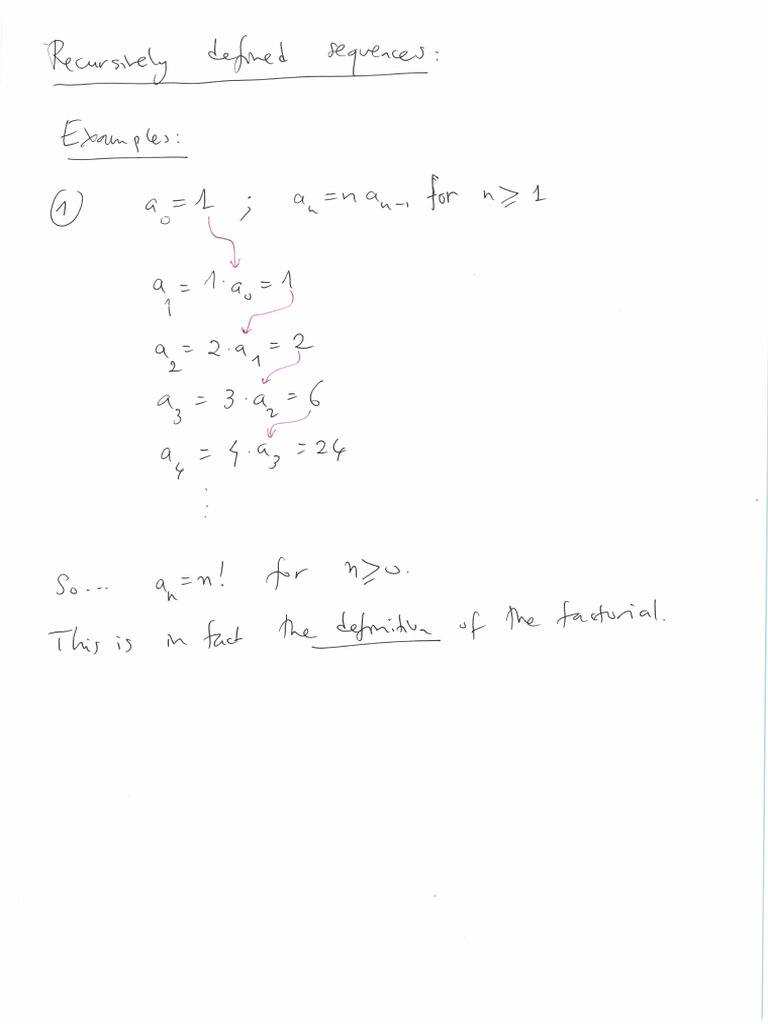 Recursively defined sequences:
Examples:
① a₀ = 1 ; aₙ = n aₙ₋₁ for n ≥ 1
a₁ = 1 · a₀ = 1
a₂ = 2 · a₁ = 2
a₃ = 3 · a₂ = 6
a₄ = 4 · a₃ = 24
⋮
So... aₙ = n! for n ≥ 0.
This is in fact the definition of the factorial.